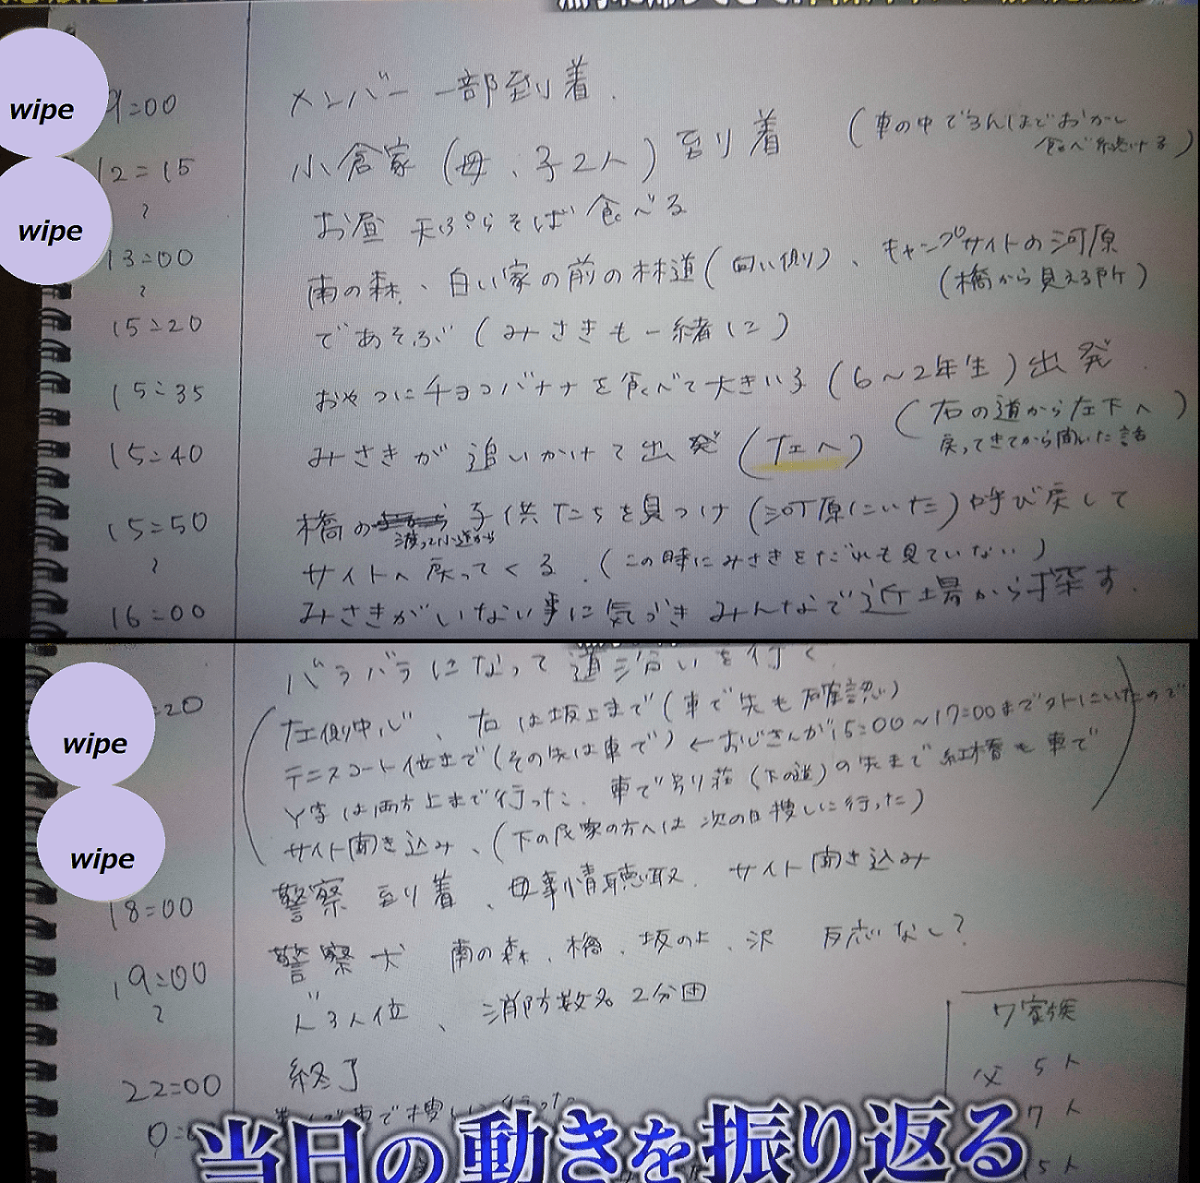 wipe
9:00 メンバー一部到着.
12:15 小倉家(母、子2人)到着 (車の中で
食べ続ける)
wipe
お昼 天ぷらそば食べる
13:00 南の森、白い家の前の林道(向い側)、キャンプサイトの河原
(橋から見える所)
15:20 であそぶ(みさきも一緒に)
15:35 おやつにチョコバナナを食べて大きい子(6〜2年生)出発
(右の道から左下へ)
戻ってきてから聞いた話
15:40 みさきが追いかけて出発(左へ)
15:50 橋の 子供たちを見つけ(河原にいた)呼び戻して
渡って小道から
サイトへ戻ってくる.(この時にみさきをだれも見ていない)
16:00 みさきがいない事に気づきみんなで近場から探す.
バラバラになって道沿いを行く
:20 左側中心、右は坂上まで(車で先も確認)
wipe
テニスコート位まで(その先は車で)←おじさんが15:00〜17:00まで外にいたので
Y字は両方上まで行った. 車で 荘(下の道)の先まで 紅橋も車で
wipe
サイト聞き込み、(下の民家の方へは次の日捜しに行った)
18:00 警察到着、母事情聴取. サイト聞き込み
19:00 警察犬 南の森、橋、坂の上、沢 反応なし?
〃3人位、消防数名2分団
22:00 終了
0:
車で捜しに行った
7家族
父 5人
7人
5人
当日の動きを振り返る